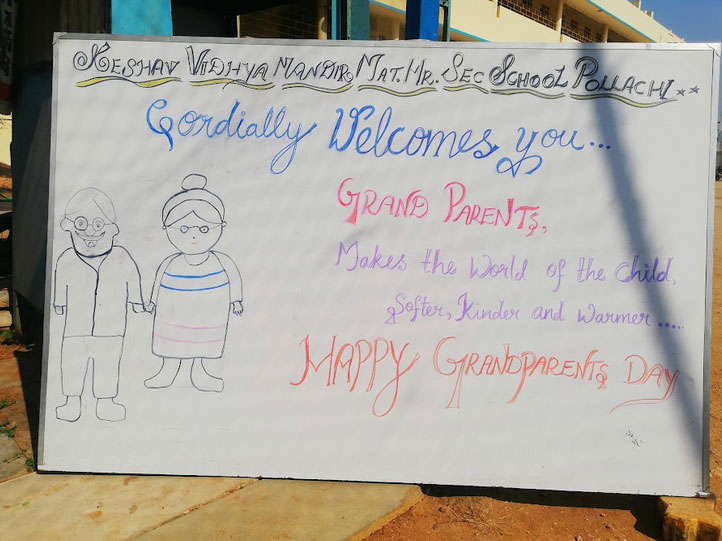 KESHAV VIDHYA MANDIR MAT. HR. SEC SCHOOL POLLACHI
Cordially Welcomes you...
GRAND PARENTS,
Makes the World of the Child,
Softer, Kinder and Warmer.....
HAPPY GRANDPARENTS DAY